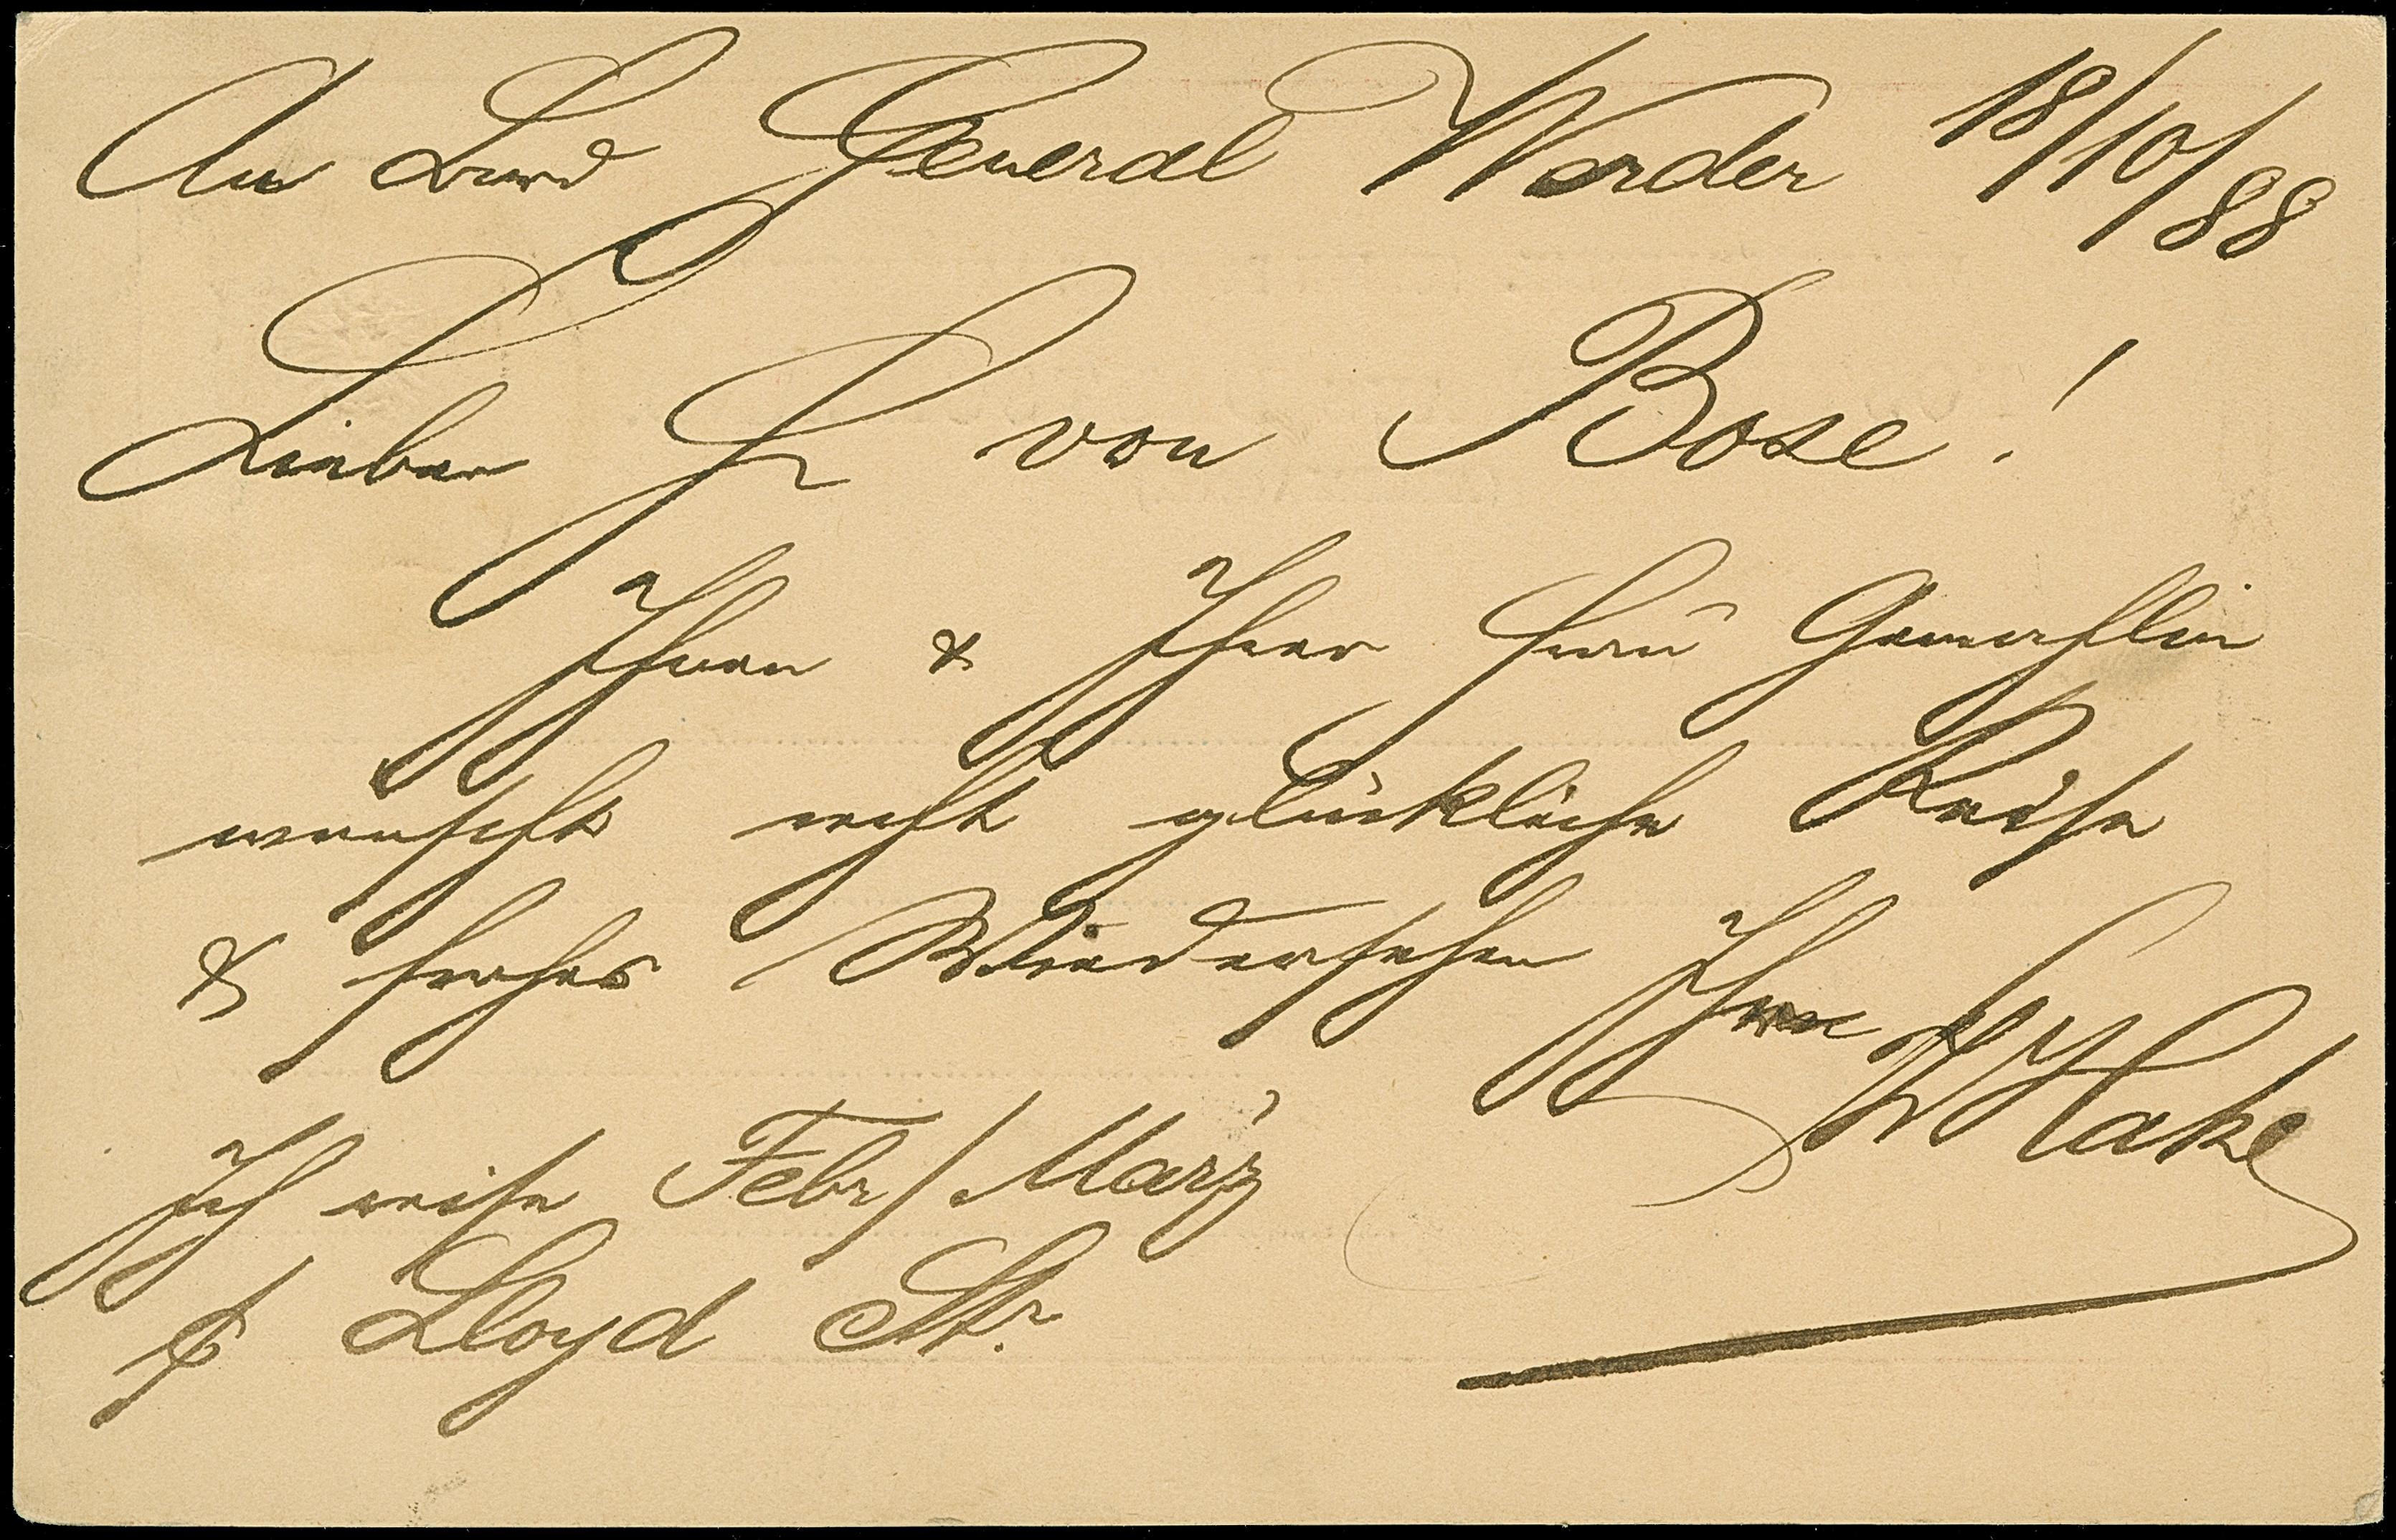 An Bord General Werder 18/10/88
Lieber H von Bose!
Ihnen & Ihrer Frau Gemahlin
wünscht recht glückliche Reise
& frohes Wiedersehen Ihr
Hake
Ich reise Febr/März
p Lloyd Str.